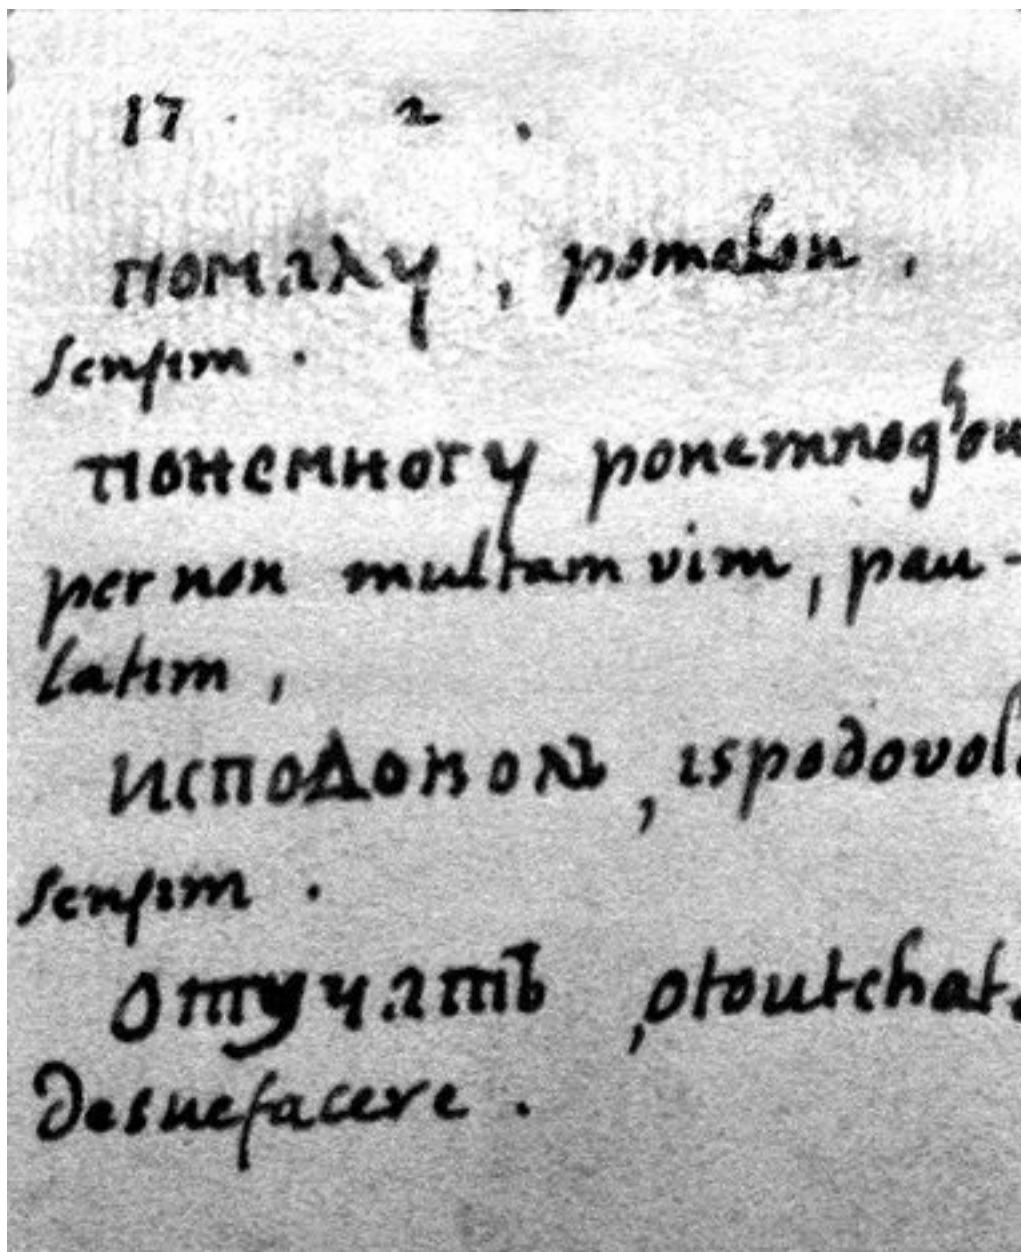 17. 2.
помалу, pomalou.
sensim.
понемногу ponemnoghou
per non multam vim, pau-
latim,
исподоволь, ispodovol
sensim.
отучать, otoutchat
desuefacere.